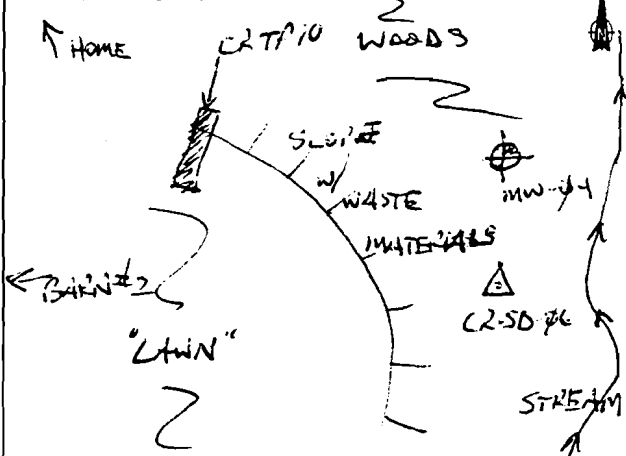 HOME
C2TP10 WOODS
SLOPE
W/
WASTE
MATERIALS
MW-04
BARN #2
"LAWN"
C2-SD-06
STREAM